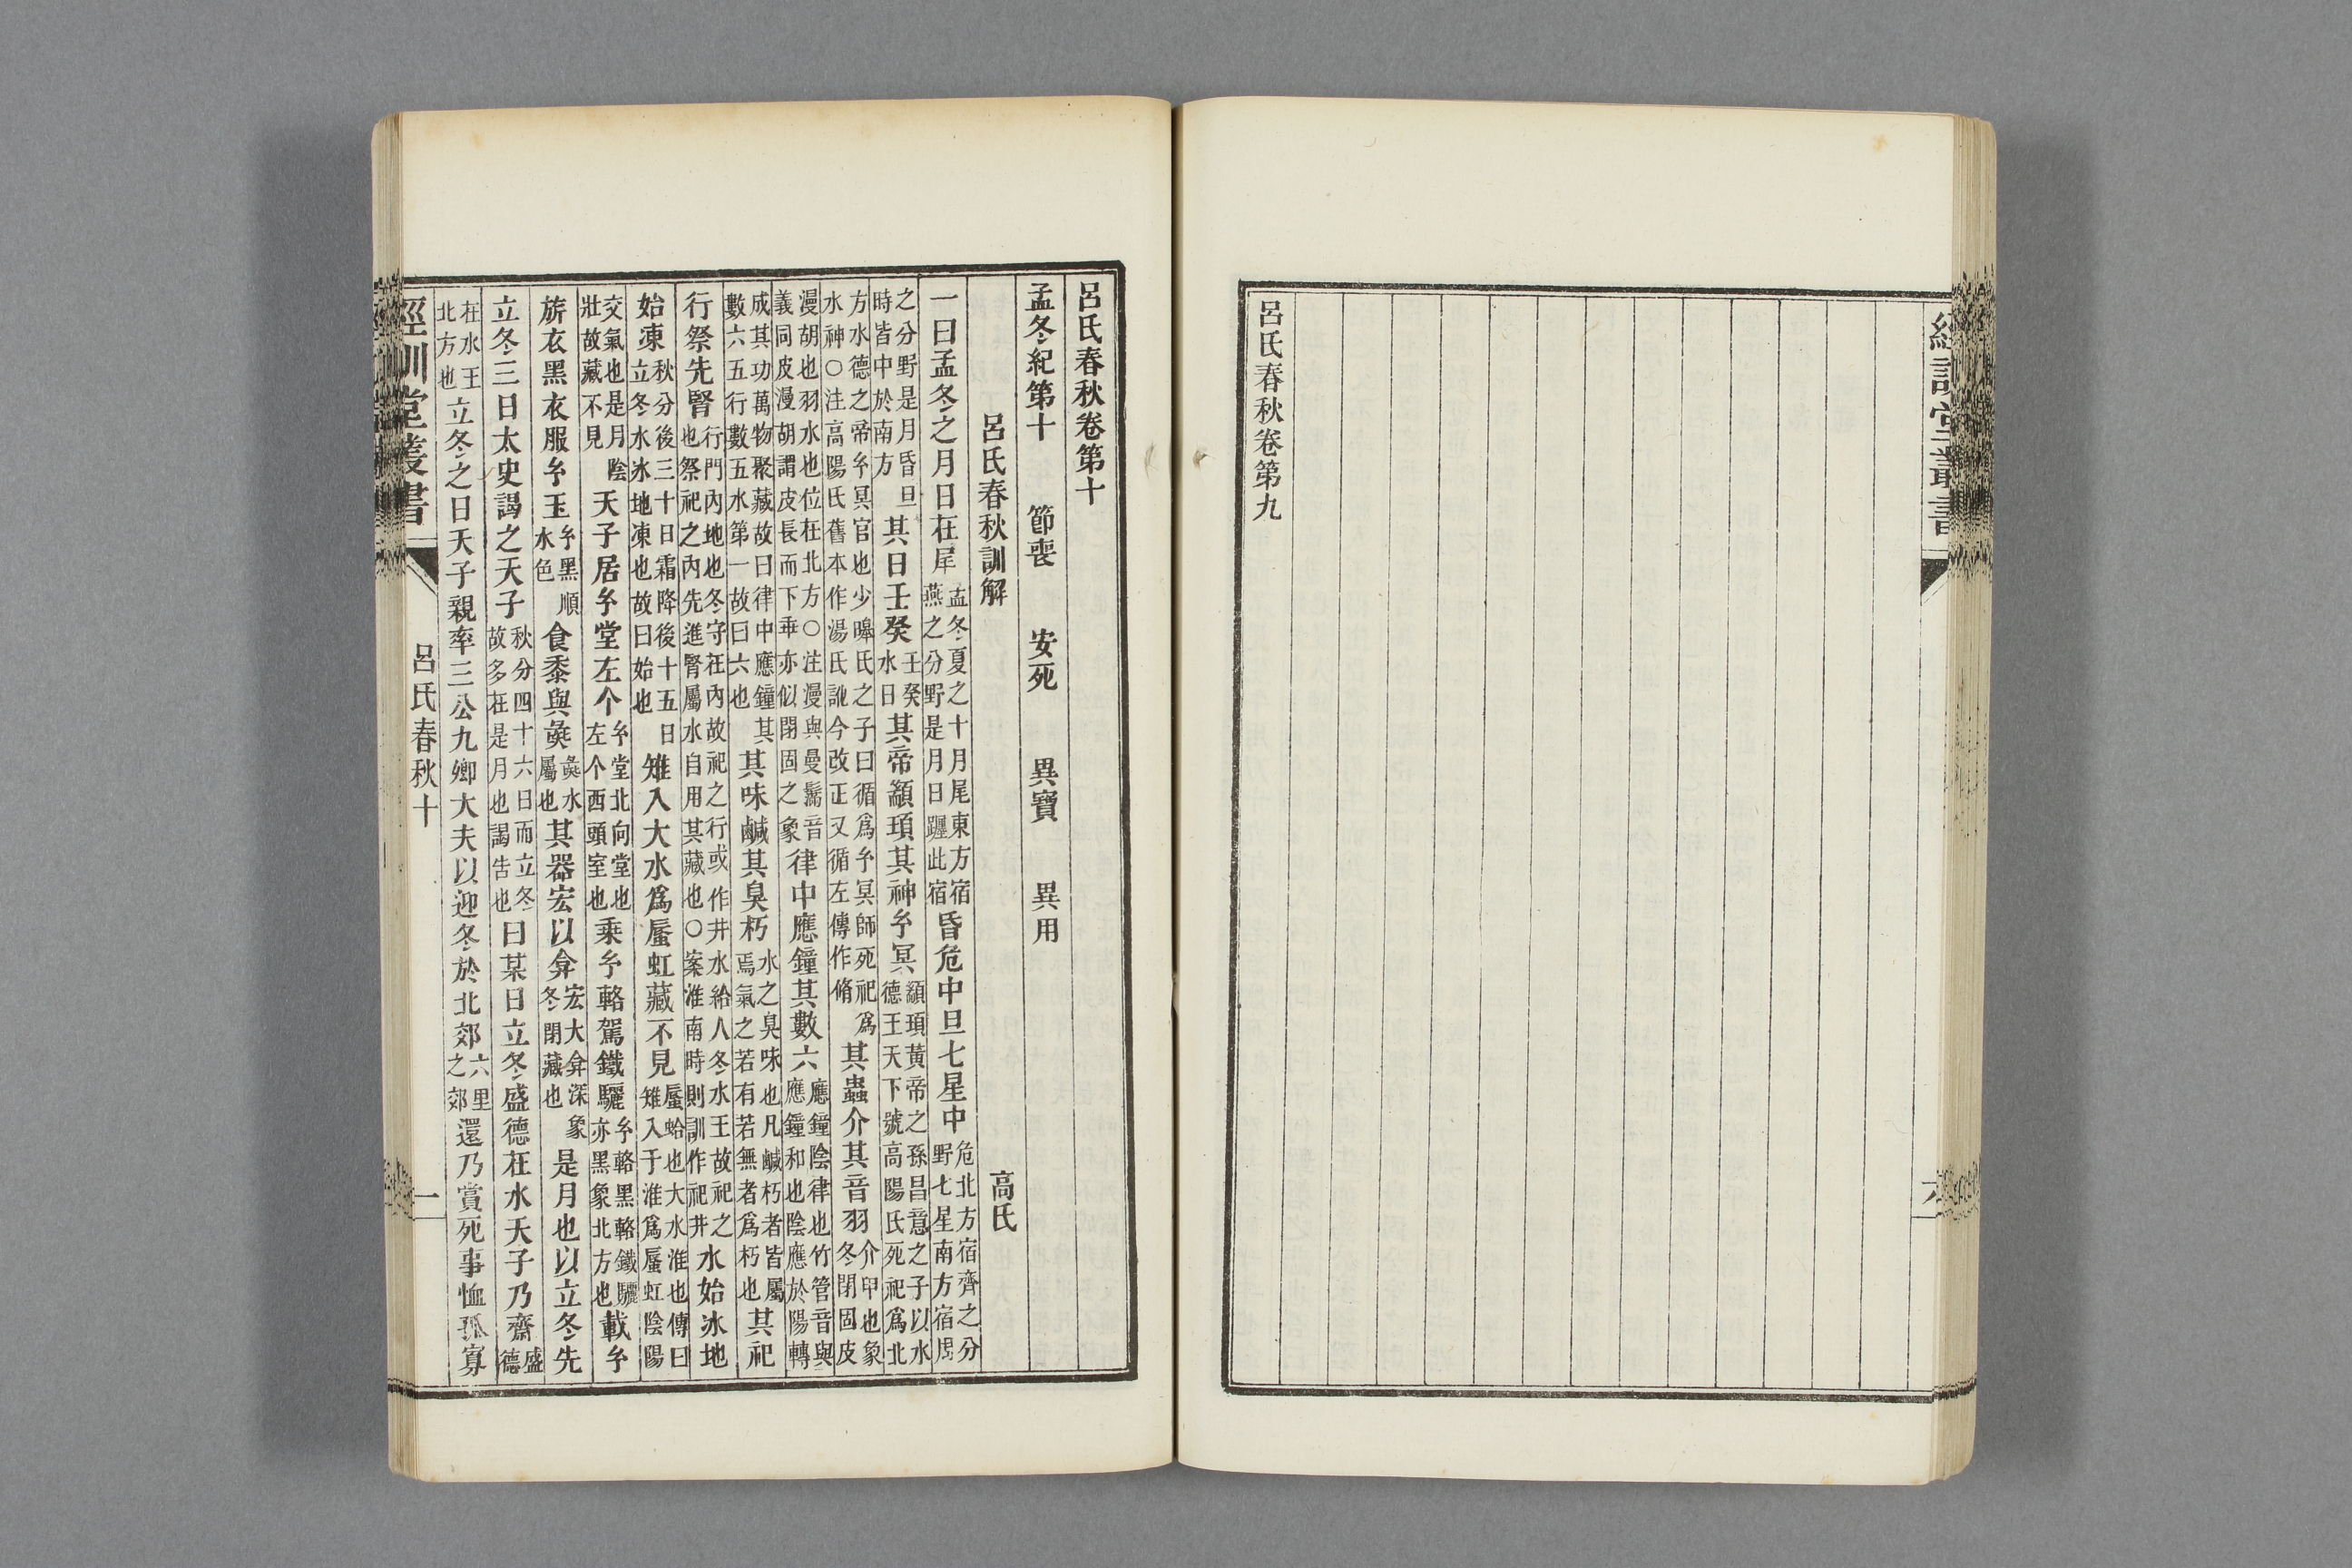 經訓堂叢書
呂氏春秋卷第九
呂氏春秋卷第十
孟冬紀第十　節喪　安死　異寶　異用
呂氏春秋訓解　高氏
一曰孟冬之月日在尾孟冬夏之十月尾東方宿燕之分野是月日躔此宿昏危中旦七星中危北方宿齊之分野七星南方宿周
之分野是月昏旦時皆中於南方其日壬癸壬癸水日其帝顓頊其神𤣥冥顓頊黃帝之孫昌意之子以水德王天下號高陽氏死祀爲北
方水德之帝𤣥冥官也少皞氏之子曰循爲𤣥冥師死祀爲水神○注高陽氏舊本作湯氏訛今改正又循左傳作脩其蟲介其音羽介甲也象冬閉固皮
漫胡也羽水也位在北方○注漫與曼鬗音義同皮漫胡謂皮長而下垂亦似閉固之象律中應鐘其數六應鐘陰律也竹管音與應鐘和也陰應於陽轉
成其功萬物聚藏故曰律中應鐘其數六五行數五水第一故曰六也其味鹹其臭朽水之臭味也凡鹹朽者皆屬焉氣之若有若無者爲朽也其祀
行祭先腎行門內地也冬守在內故祀之行或作井水給人冬水王故祀之也祭祀之內先進腎屬水自用其藏也○案淮南時則訓作祀井水始冰地
始凍秋分後三十日霜降後十五日立冬水冰地凍也故曰始也雉入大水爲蜃虹藏不見蜃蛤也大水淮也傳曰雉入于淮爲蜃虹陰陽
交氣也是月陰壯故藏不見天子居𤣥堂左个𤣥堂北向堂也左个西頭室也乘𤣥輅駕鐵驪𤣥輅黑輅鐵驪亦黑象北方也載𤣥
旂衣黑衣服𤣥玉𤣥黑順水色食黍與彘彘水屬也其器宏以弇宏大弇深象冬閉藏也是月也以立冬先
立冬三日太史謁之天子秋分四十六日而立冬故多在是月也謁告也曰某日立冬盛德在水天子乃齋盛德
在水王北方也立冬之日天子親率三公九卿大夫以迎冬於北郊六里之郊還乃賞死事恤孤寡
經訓堂叢書　呂氏春秋十　一